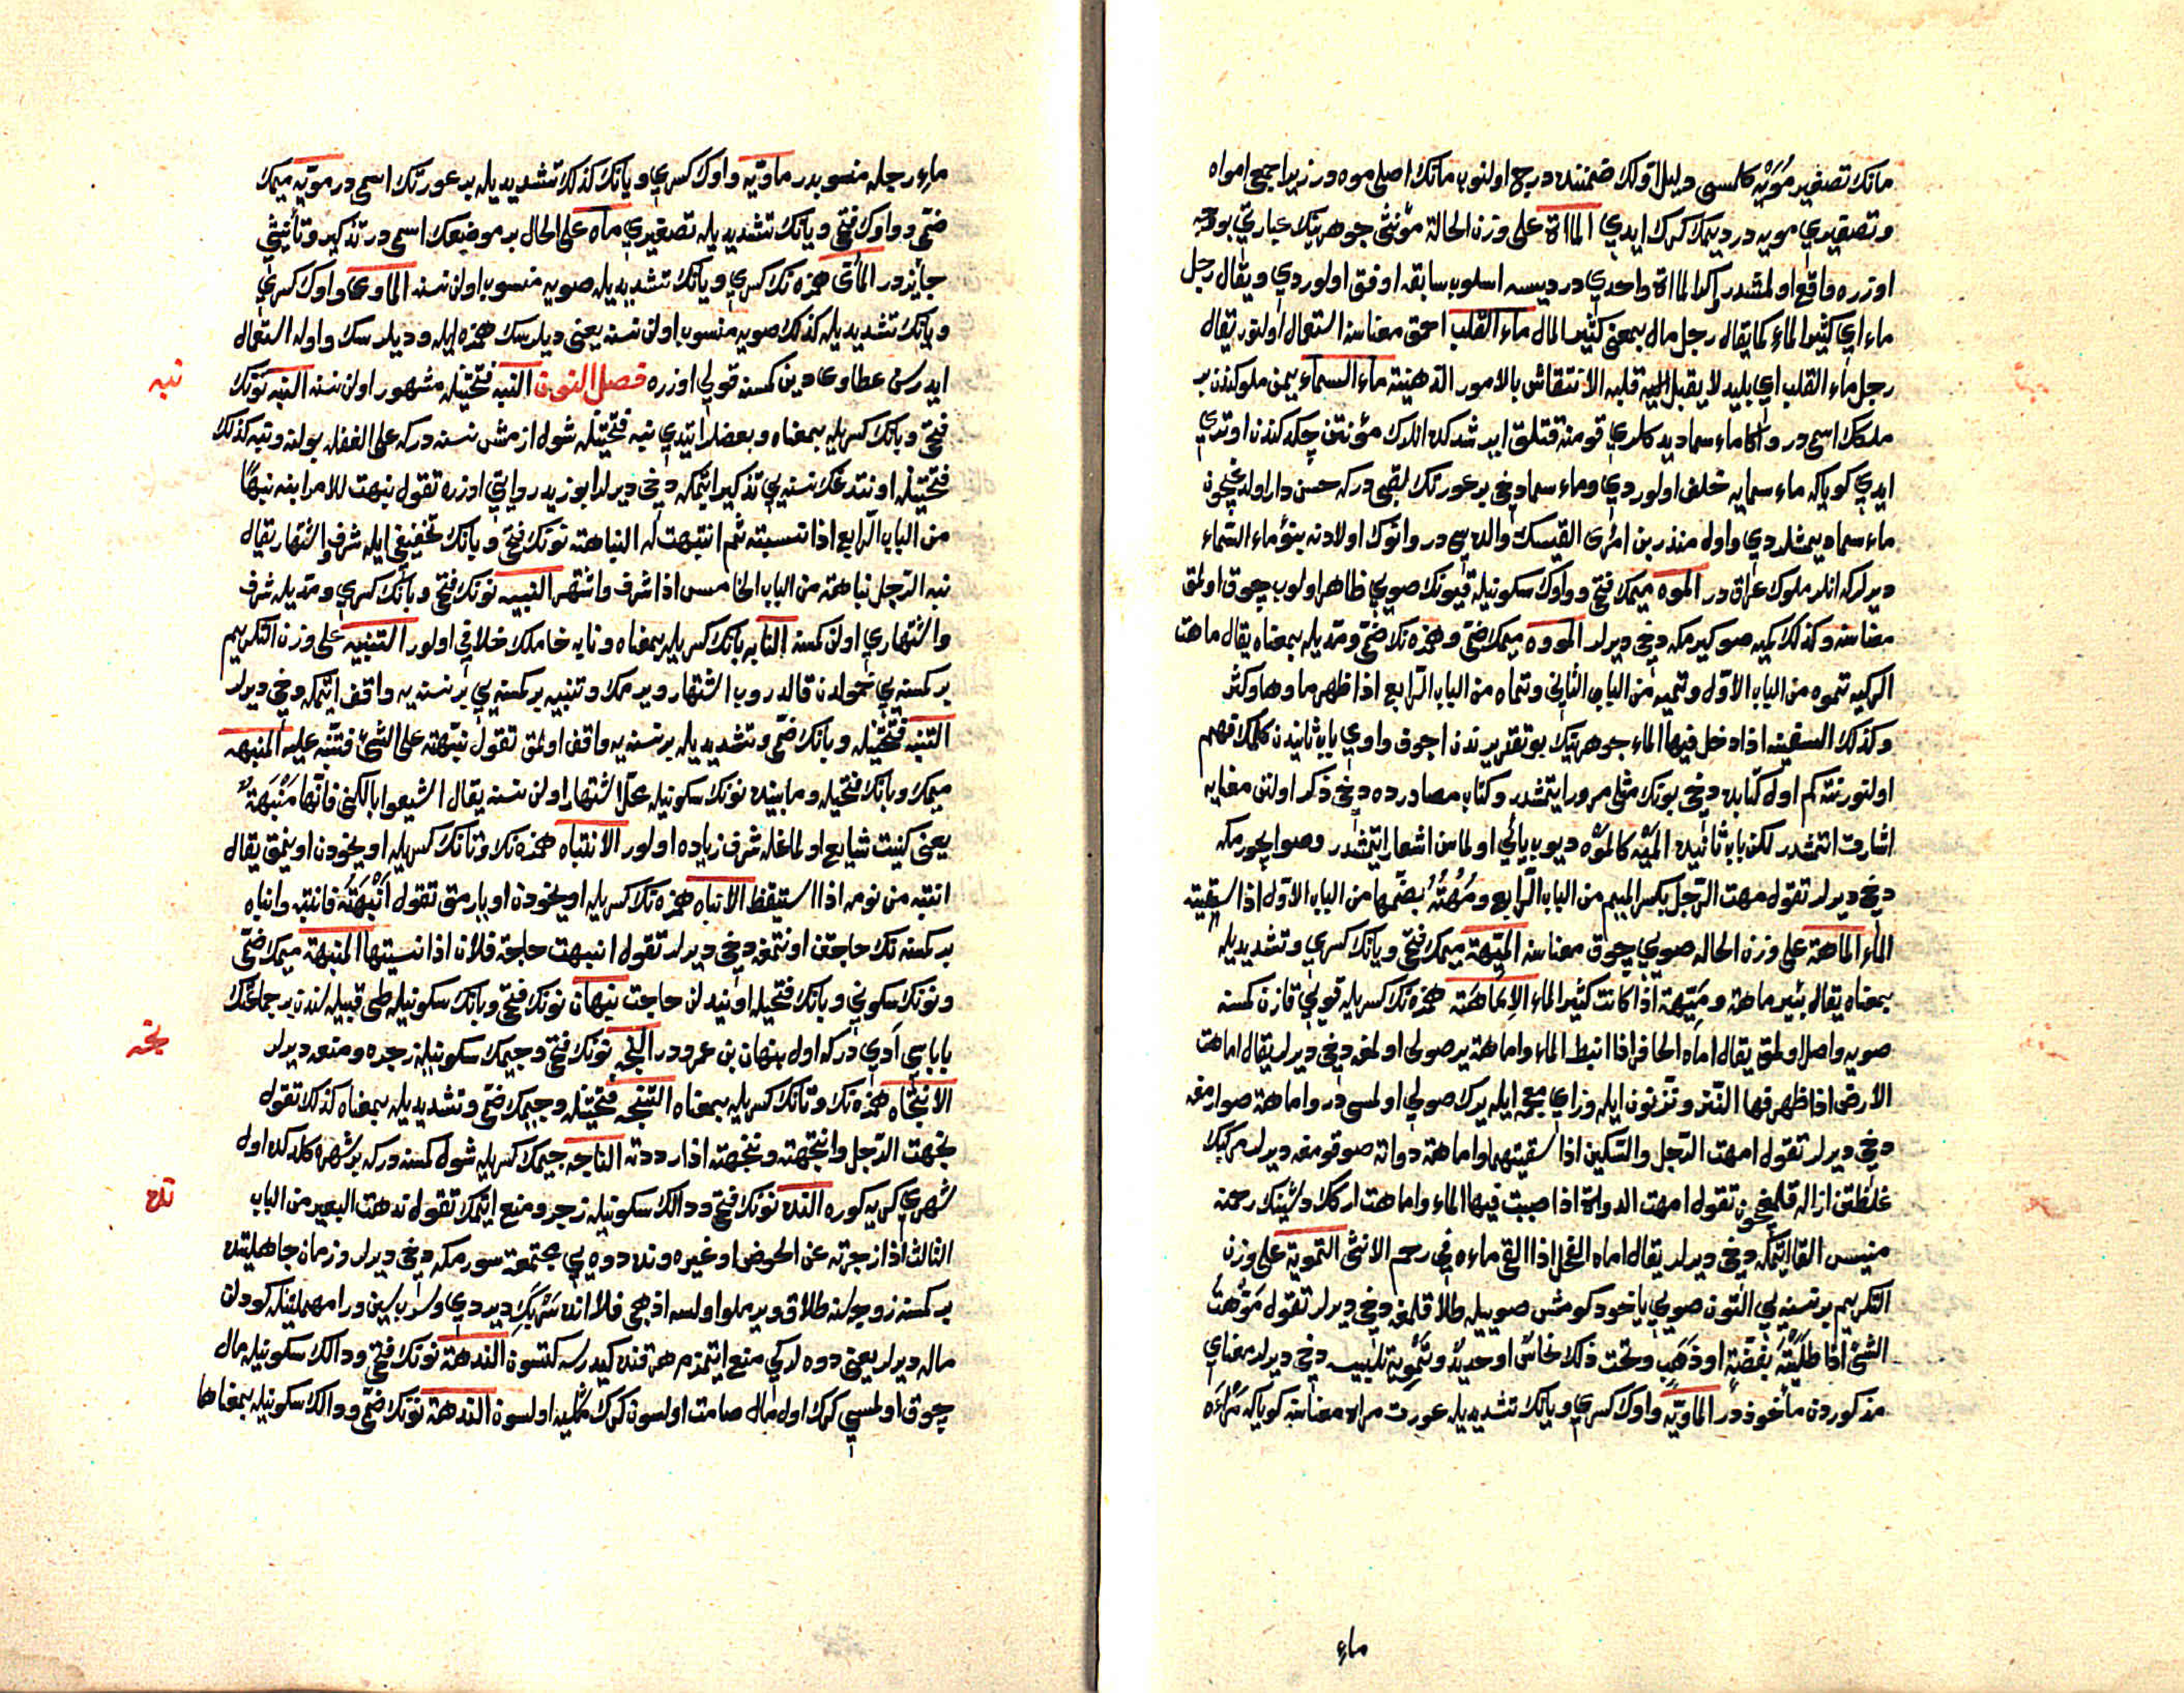 مانك تصغير مُوَيْه كلسى دليل اولك ضمننده درج اولنوب مانك اصلى موه در زيرا جمعى امواه
وتصغيري مويه در ديمك كرك ايدي الماءة على وزن الحالة مؤنثى جوهرينك عبارتي بو وجه
اوزره واقع اولمشدر اكا الماءة واحدي در ديسه اسلوب سابقه اوفق اولوردي ويقال رجل
ماء اي كثير الماء كما يقال رجل مال بمعنى كثير المال ماء القلب احمق معناسنه استعمال اولنور يقال
رجل ماء القلب اي بليد لا يقبل قلبه الانتقاش بالامور الذهنية ماء السماء يمن ملوكندن بر
ملكك اسمى در واكا ماء سما ديدكلري قومنه قتلق ايرشدكده انلرك مؤنتن چكدكندن اوتري
ايدي كوياكه ماء سمايه خلف اولوردي وماء سما دخى بر عورتك لقبى دركه حسن دار اولديغيچون
ماء سما ديمشلردي واول منذر بن امرئ القيسك والده سى در وانوك اولادنه بنو ماء السماء
ديرلركه انلر ملوك عراق در الموه ميمك فتحى وواوك سكونيله قيونك صويي ظاهر اولوب چوق اولمق
معناسنه وكذلك كميه صو كيرمكه دخى ديرلر المووه ميمك ضمى وهمزه نك ضمى ومديله بمعناه يقال ماهت
الركيه تموه من الباب الاول وتميه من الباب الثانى وتماه من الباب الرابع اذا ظهر ماوها وكثر
وكذلك السفينه اذا دخل فيها الماء جوهرينك بو تقديرندن اجوف واوي باب ثانيدن كلمك فهم
اولنور نتكم اول كتابده دخى بونك مثلى مرور ايتمشدر وكتاب مصادرده دخى ذكر اولنن معنايه
اشارت اتمشدر لكن باب ثانيده الميه كالموه ديوب يائي اولماسن اشعار ايتمشدر وصو ايچورمكه
دخى ديرلر تقول مهت الرجل بكسر الميم من الباب الرابع ومُهْتُهُ بضمها من الباب الاول اذا سقيته
الماء الماهة على وزن الحاله صويي چوق معناسنه الميّهة ميمك فتحى ويانك كسري وتشديديله
بمعناه يقال بئر ماهة وميّهة اذا كانت كثير الماء الاماهة همزه نك كسريله قويي قازن كمسنه
صويه واصل اولمق يقال اماه الحافر اذا انبط الماء واماهة ير صولى اولمغه دخى ديرلر يقال اماهت
الارض اذا ظهر فيها النزّ ونز نون ايله وزاي معجمه ايله يرك صولى اولمسى در واماهة صوارمغه
دخى ديرلر تقول امهت الرجل والسكين اذا سقيتهما واماهة دواته صو قومغه ديرلر مركبك
غلظتن ازاله قلمغچون تقول امهت الدواة اذا صببت فيها الماء واماهت اركك دشينك رحمنه
منيسن القا ايتمكه دخى ديرلر يقال اماه الفحل اذا القى ماءه فى رحم الانثى التمويه على وزن
التكريم بر نسنه يي التون صويي ياخود كومش صوييله طلا قلمغه دخى ديرلر تقول مَوَّهْتُ
الشئ اذا طليته بفضة او ذهب وتحت ذلك نحاس او حديد وتمويه تلبيسه دخى ديرلر معناي
مذكوردن مأخوذدر الماويّه واوك كسري ويانك تشديديله عورت مراه معناسنه كوياكه مراءه
ماء
ماء رجله منسوبدر ماويّه واوك كسري ويانك كذلك تشديديله بر عورتك اسمى در مويّه ميمك
ضمى وواوك فتحى ويانك تشديديله تصغيري ماه على الحال بر موضعك اسمى در تذكير وتأنيثى
جايزدر المائى همزه نك كسري ويانك تشديديله صويه منسوب اولن نسنه الماوى واوك كسري
ويانك تشديديله كذلك صويه منسوب اولن نسنه يعنى ديلرسك همزه ايله وديلرسك واوله استعمال
ايدرسن عطاوى دين كمسنه قولي اوزره فصل النون النبه فتحتيله مشهور اولن نسنه النبه نونك
نبه
فتحى وبانك كسريله بمعناه وبعضلر ايتدي نبه فتحتيله شول ازمش نسنه دركه على الغفله بولنه ونبه كذلك
فتحتيله اوندلغك نسنه يي تذكير ايتمكه دخى ديرلر ابو زيد روايتي اوزره تقول نبهت للامر انبه نبهًا
من الباب الرابع اذا نسيته ثم انتبهت له النباهة نونك فتحى وبانك تخفيفى ايله شرف واشتهار يقال
نبه الرجل نباهة من الباب الخامس اذا شرف واشتهر النبيه نونك فتحى وبانك كسري ومديله شرف
واشتهاري اولن كمسنه النابه بانك كسريله بمعناه ونابه خاملك خلافى اولور التنبيه على وزن التكريم
بر كمسنه يي خمولدن قالدروب اشتهار ويرمك وتنبيه بر كمسنه يي بر نسنه يه واقف ايتمكه دخى ديرلر
التنبه فتحتيله وبانك ضمى وتشديديله بر نسنه يه واقف اولمق تقول نبّهته على الشئ فتنبّه عليه المنبهه
ميمك وبانك فتحيله ومابينده نونك سكونيله محل اشتهار اولن نسنه يقال اشيعوا بالكنى فانها مَنْبَهَةٌ
يعنى كنيت شايع اولماغله شرف زياده اولور الانتباه همزه نك وتانك كسريله اويخودن اويانمق يقال
انتبه من نومه اذا استيقظ الانباه همزه نك كسريله اويخودن اويارمق تقول اَنْبَهْتُهُ فانتبه وانباه
بر كمسنه نك حاجتن اونتمغه دخى ديرلر تقول انبهت حاجة فلان اذا نسيتها المنبهة ميمك ضمى
ونونك سكوني وبانك فتحيله اونيدلن حاجت نبهان نونك فتحى وبانك سكونيله طى قبيله لندن بر جماعتك
باباسي آدي دركه اول نبهان بن عمرو در النجه نونك فتحى وجيمك سكونيله زجره ومنعه ديرلر
نجه
الانتجاه همزه نك وتانك كسريله بمعناه التنجه فتحتيله وجيمك ضمى وتشديديله بمعناه كذلك تقول
نجهت الرجل وانتجهته وتنجهته اذا رددته الناجه جيمك كسريله شول كمسنه دركه بر شهره كلدكده اول
شهري كريه كوره النده نونك فتحى ودالك سكونيله زجر ومنع ايتمك تقول ندهت البعير من الباب
نده
الثالث اذا زجرته عن الحوض او غيره ونده دوه يي مجتمعة سورمكه دخى ديرلر وزمان جاهليتده
بر كمسنه زوجه سنه طلاق ويرملو اولسه اذهبي فلا انده سَرْبَكِ ديردي وسرب سين ورا مهملتيله كودلن
ماله ديرلر يعنى دوه لركي منع ايتمزم هر قنده كيدرسه كتسون الندهة نونك فتحى ودالك سكونيله مال
چوق اولمسى كرك اول مال صامت اولسون كرك مثلين اولسون الندهة نونك ضمى ودالك سكونيله بمعناها